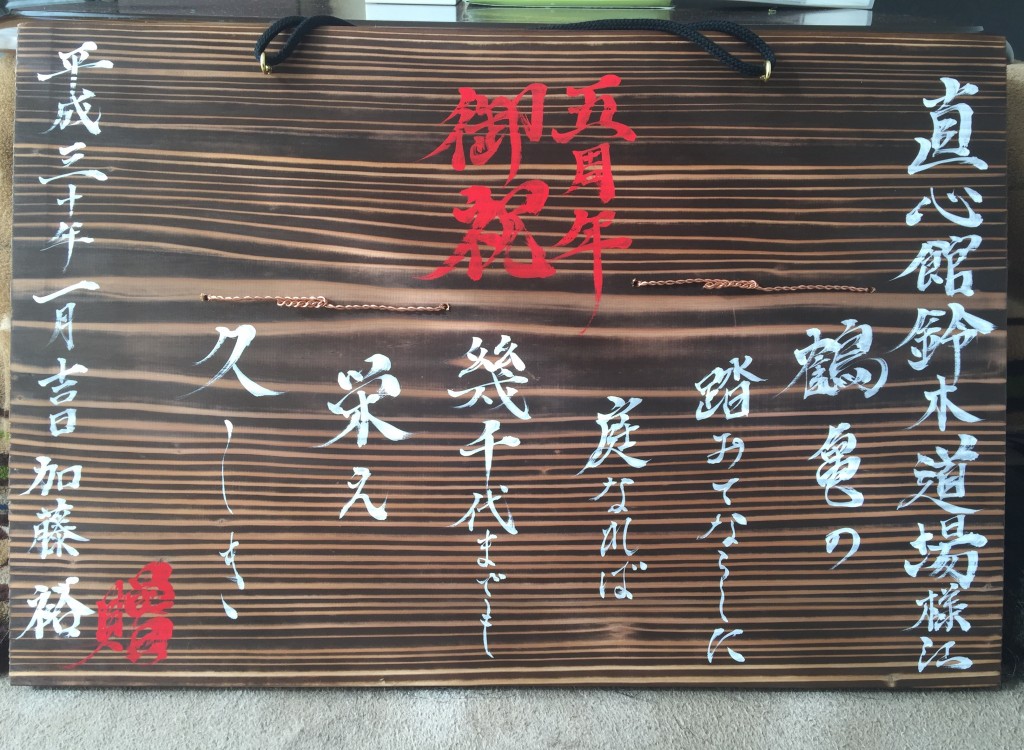 直心館鈴木道場様江
五周年
御祝
鶴亀の
踏みてならしに
庭なれば
幾千代までも
栄え
久しき
平成三十年一月吉日 加藤 裕
贈